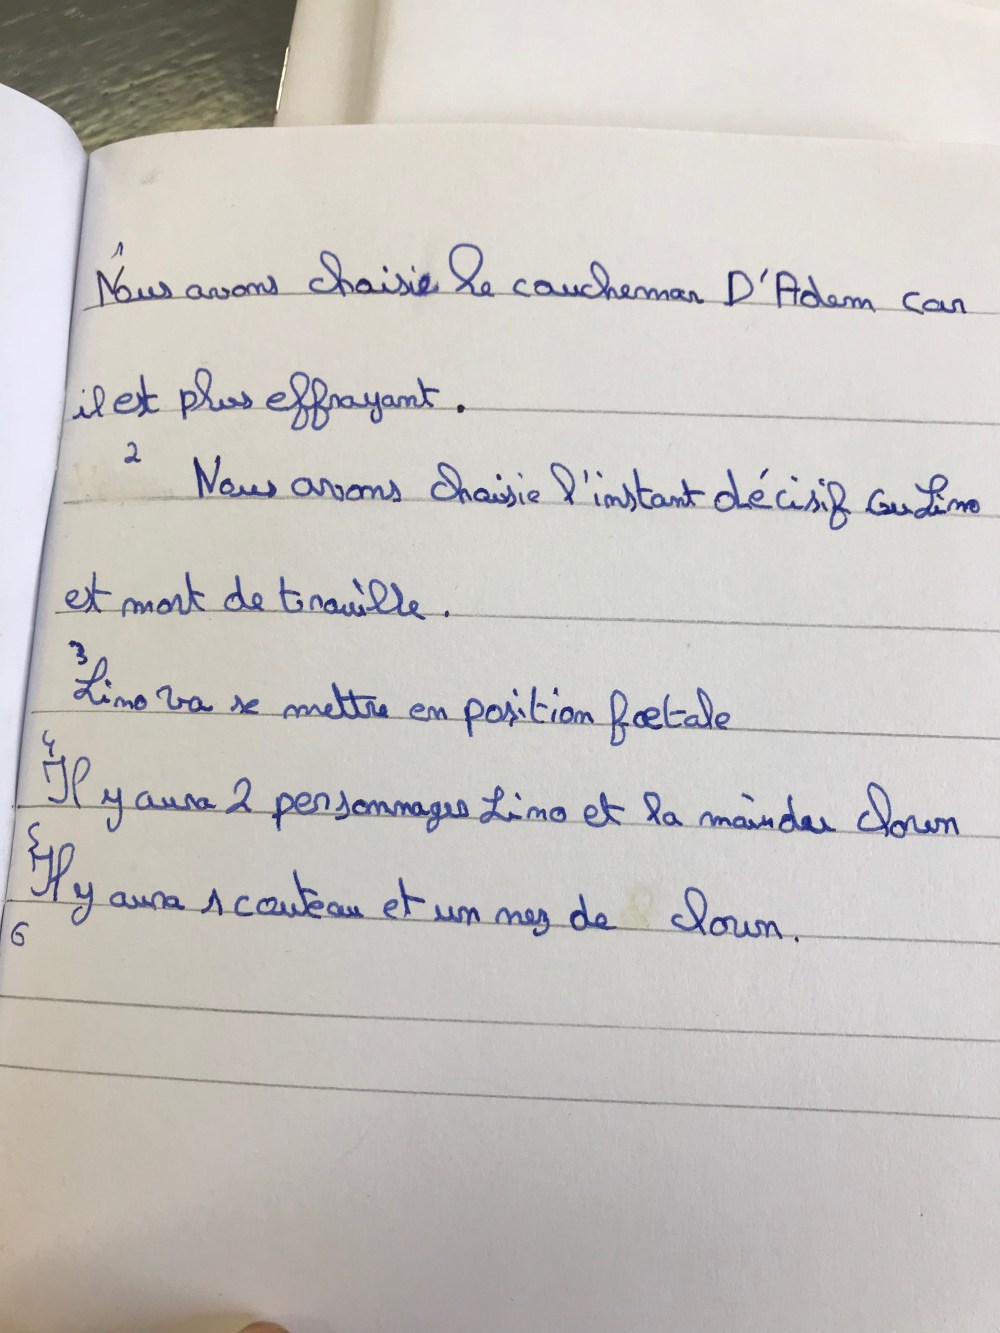 1
Nous avons choisie le cauchemar D'Adem car
il est plus effrayant.
2 Nous avons choisie l'instant décisif ou Lino
est mort de trouille.
3
Lino va se mettre en position fœtale
4
Il y aura 2 personnages Lino et la main du clown
5
Il y aura 1 couteau et un nez de clown.
6